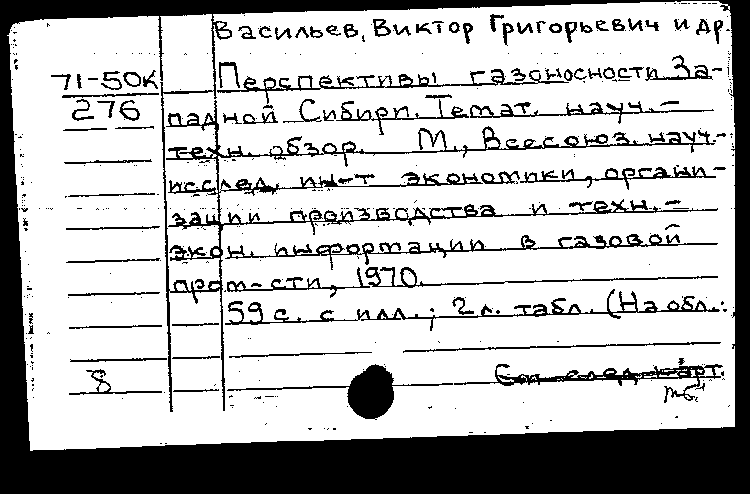 Васильев, Виктор Григорьевич и др.
71-50К Перспективы газоносности За-
276 падной Сибири. Темат. науч.-
техн. обзор. М., Всесоюз. науч.-
исслед. ин-т экономики, органи-
зации производства и техн.-
экон. информации в газовой
пром-сти, 1970.
59 с. с илл.; 2 л. табл. (На обл.:
8 См след карт.